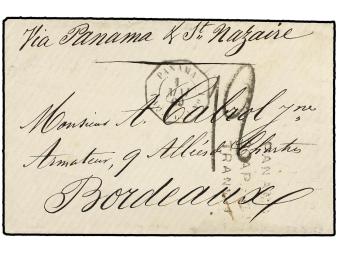 Via Panama & St. Nazaire
PANAMA
1
Monsieur A. Cabrol jne
Armateur, 9 Allées de Chartres
Bordeaux
12
PAN
PAP
TRAN